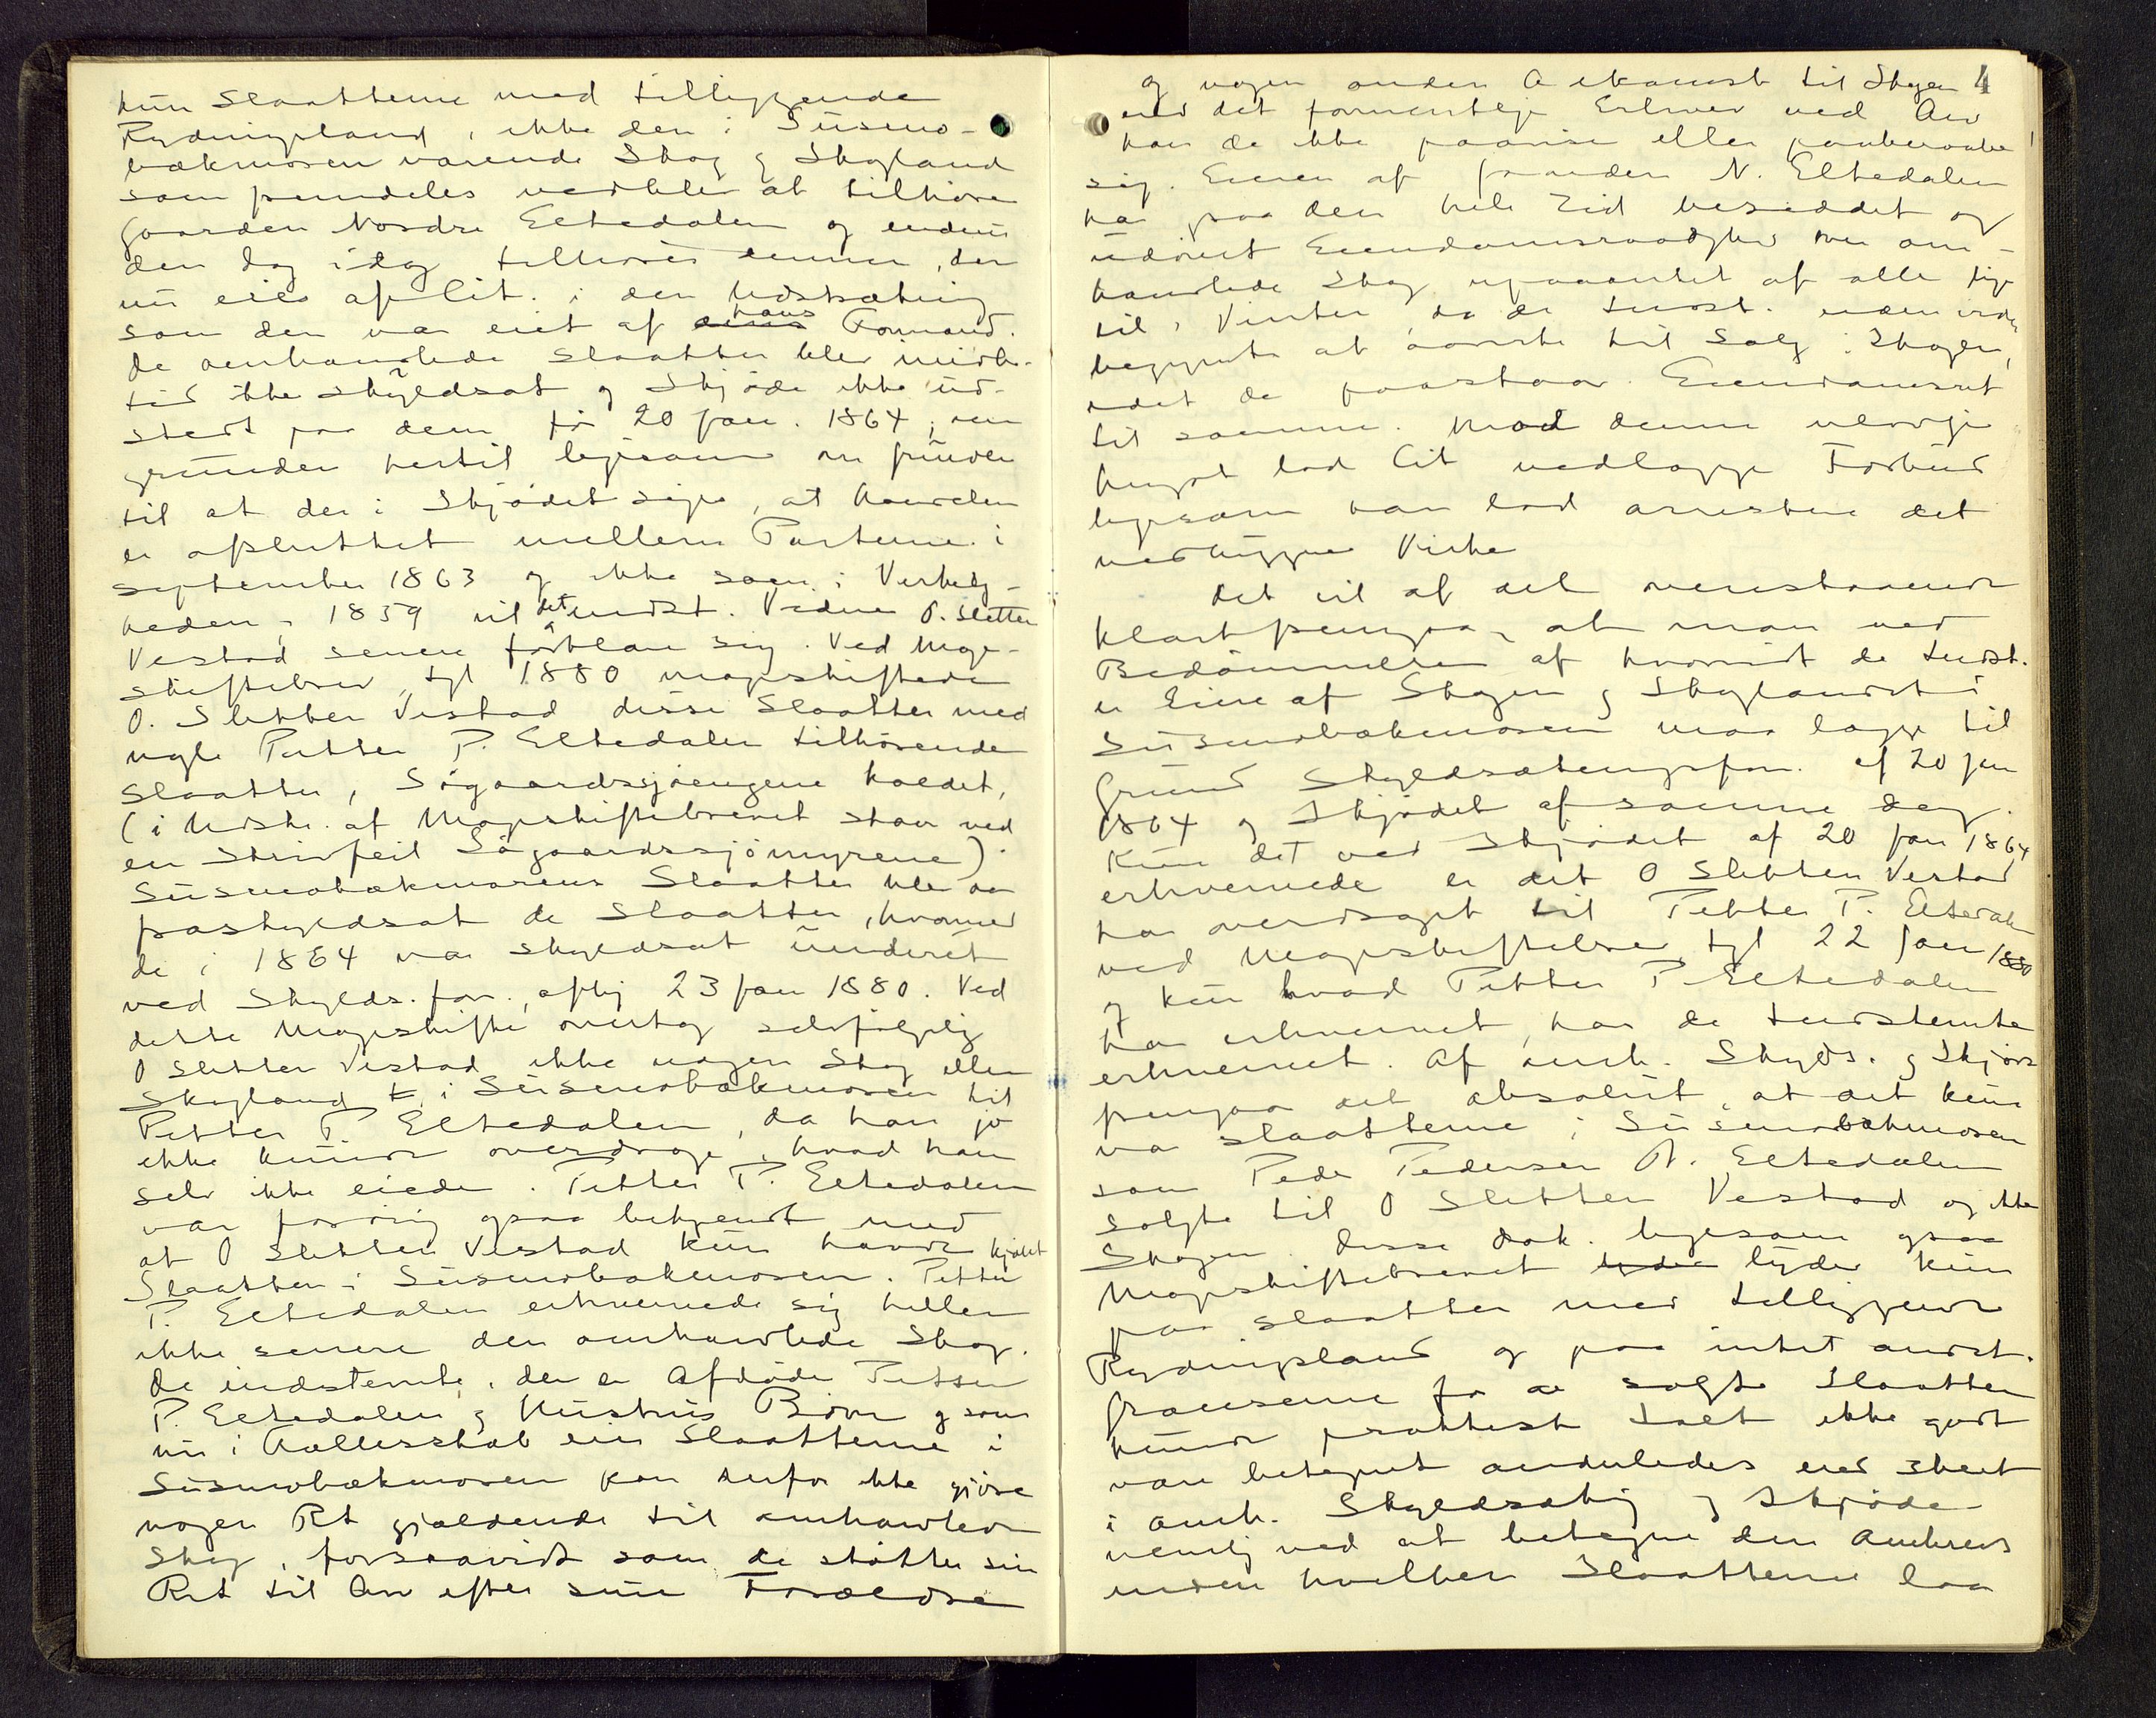 kun Slaatterne med tilliggende
Rydningsland, ikke den i Susmo-
bækmosen værende Skog og Skogland
som fremdeles vedblev at tilhøre
Gaarden Nordre Eltedalen og endnu
den Dag idag tilhører denne, der
nu eies af Cit. i den Udstrækning
som den var eiet af hans Formand.
De omhandlede Slaatter blev imidler-
tid ikke skyldsat og Skjøde ikke ud-
stedt paa dem før 20 Jan. 1864, men
grunden hertil ligesom om grunden
til at der i Skjødet siges, at Handelen
er afsluttet mellem Parterne i
September 1863 og ikke som i Virkelig-
heden i 1859 vil det indst. Vidne O. Sletten
Vestad senere forklare sig. Ved Mage-
skiftebrev, tgl 1880 mageskiftede
O. Sletten Vestad disse Slaatter med
nogle Petter P. Eltedalen tilhørende
Slaatter, Søgaardssjøengene kaldet,
(i Udskr. af Mageskiftebrevet staar ved
en Skrivfeil Søgaardssjømyrene).
Susmobækmosens Slaatter blev da
fraskyldsat de Slaatter, hvormed
de i 1864 var skyldsat underet
ved Skylds.forr., afhj 23 Jan 1880. Ved
dette Mageskifte overtog selvfølgelig
O Sletten Vestad ikke nogen Skog eller
Skogland i Susmobækmosen til
Petter P. Eltedalen, da han jo
ikke kunde overdrage, hvad han
selv ikke eiede. Petter P. Eltedalen
var forøvrig ogsaa bekjendt med
at O Sletten Vestad kun havde kjøbt
Slaatten i Susmobækmosen. Petter
P. Eltedalen erhvervede sig heller
ikke senere den omhandlede Skog.
De indstevnte, der er Afdøde Petter
P. Eltedalen og Hustrus Børn og som
nu i Fællesskab eier Slaatterne i
Susmobækmosen kan derfor ikke gjøre
nogen Ret gjældende til omhandlede
Skog, forsaavidt som de støtter sin
Ret til Arv efter sine Forældre
4
og nogen anden Adkomst til Skogen
end det formentlige Erhverv ved Arv
kan de ikke paavise eller paaberaabe
sig. Eieren af Gaarden N. Eltedalen
har paa den hele Tid besiddet og
udøvet Eiendomsraadighed over om-
handlede Skog upaaanket af alle lige
til i Vinter, da de indst. uden videre
begyndte at avvirke til Salg i Skogen,
idet de paastaar Eiendomsret
til samme. Mod denne ulovlige
Hugst lod Cit nedlægge Forbud
ligesom han lod arrestere det
nedhuggne Virke
Det vil af det ovenstaaende
klart fremgaa, at man ved
Bedømmelsen af hvorvidt de indst.
er Eiere af Skogen og Skoglandet i
Susmobækmosen maa lægge til
Grund Skyldsætningsforr. af 20 Jan
1864 og Skjødet af samme Dag.
Kun det ved Skjødet af 20 Jan 1864
erhvervede er det O Sletten Vestad
har overdraget til Petter P. Eltedalen
ved Mageskiftebrev tgl 22 Jan 1880
og kun hvad Petter P Eltedalen
har erhvervet, har de indstevnte
erhvervet. Af omh. Skylds. og Skjøde
fremgaar det absolut, at det kun
var Slaatterne i Susmobækmosen
som Peder Pedersen N. Eltedalen
solgte til O Sletten Vestad og ikke
Skogen. Disse Dok. ligesom ogsaa
Mageskiftebrevet lyder kun
paa Slaatter med tilliggende
Rydningsland og paa intet andet.
Grænserne for de solgte Slaatter
kunde praktisk talt ikke godt
være betegnet anderledes end skeet
i omh. Skyldsætng og Skjøde
nemlig ved at betegne den Omkreds
inden hvilken Slaatterne laa